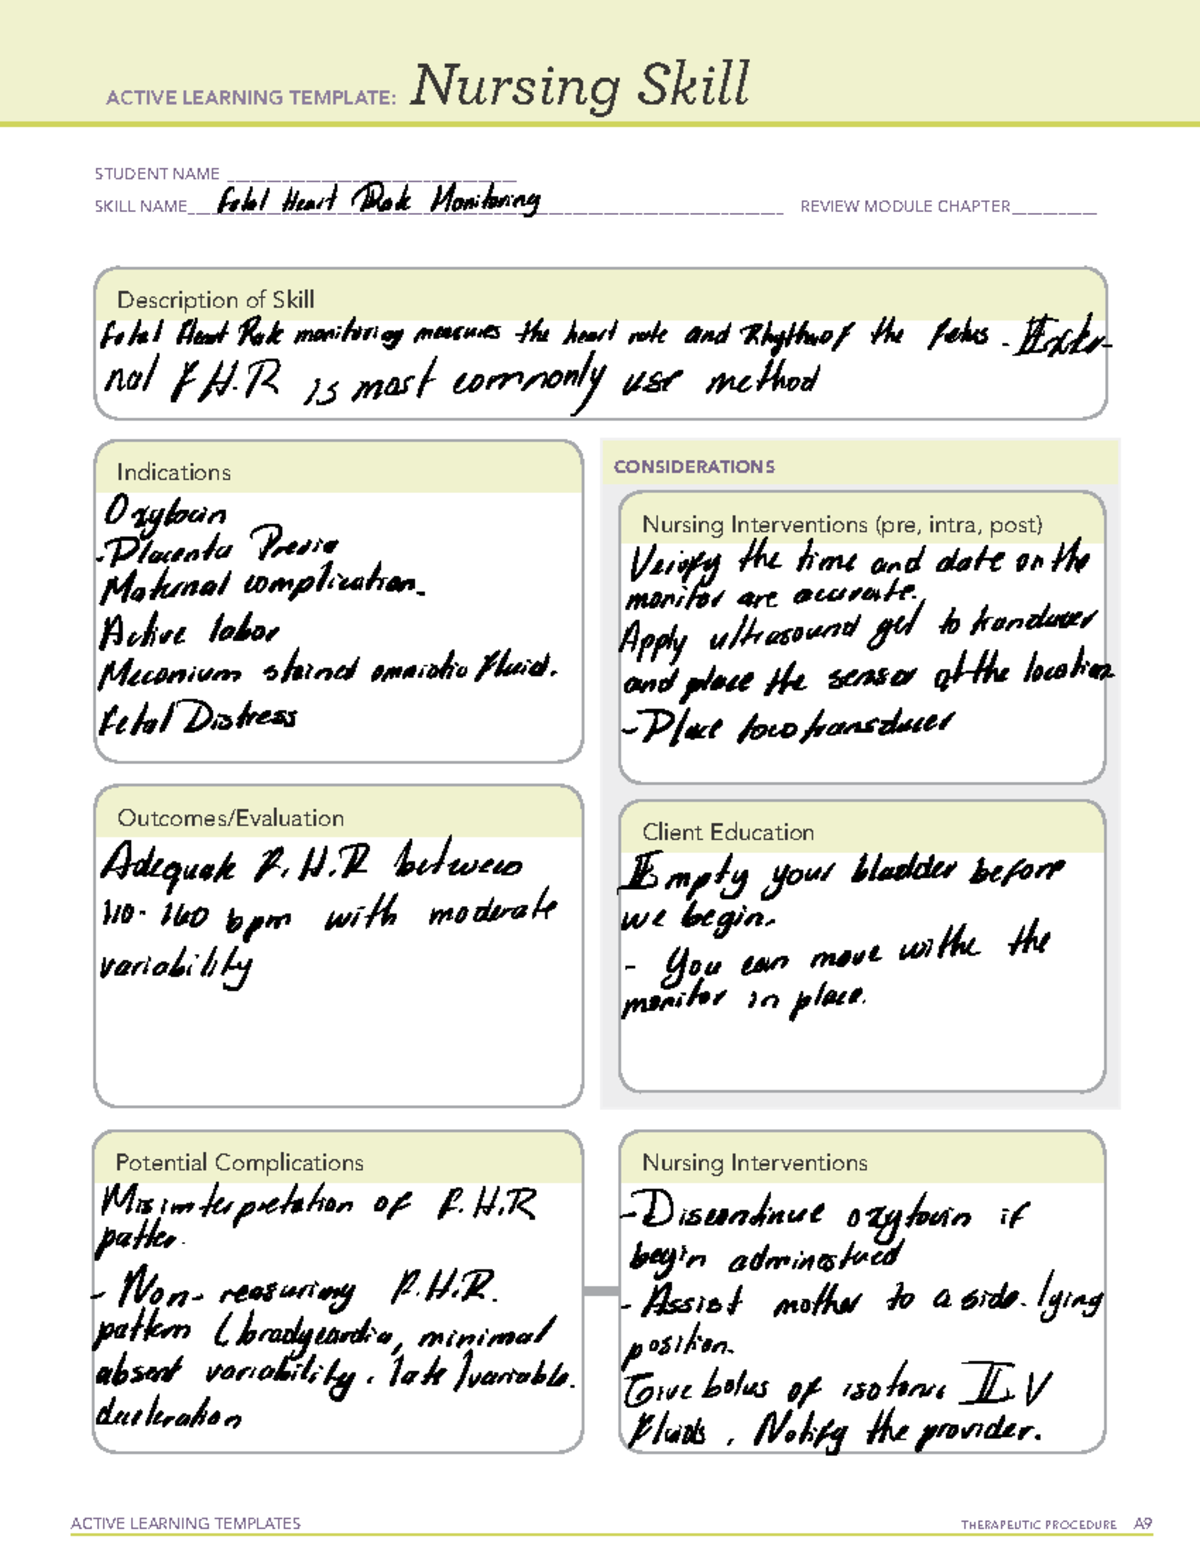 ACTIVE LEARNING TEMPLATE: Nursing Skill
STUDENT NAME
SKILL NAME Fetal Heart Rate Monitoring REVIEW MODULE CHAPTER
Description of Skill
Fetal Heart Rate monitoring measures the heart rate and Rhythm of the fetus. Exter-
nal F.H.R is most commonly use method
Indications
Oxytocin
-Placenta Previa
Maternal complication.
Active labor
Meconium stained amniotic fluid.
Fetal Distress
CONSIDERATIONS
Nursing Interventions (pre, intra, post)
Verify the time and date on the
monitor are accurate.
Apply ultrasound gel to tranducer
and place the sensor at the location
-Place toco transducer
Outcomes/Evaluation
Adequate F.H.R between
110-160 bpm with moderate
variability
Client Education
Empty your bladder before
we begin.
- You can move withe the
monitor in place.
Potential Complications
Misinterpretation of F.H.R
patter.
- Non-reasuring F.H.R.
pattern (bradycardia, minimal
absent variability, late/variable.
deceleration
Nursing Interventions
-Discontinue oxytocin if
begin adminestued
-Assist mother to a side-lying
position.
Give bolus of isotonic I.V
Fluids, Notify the provider.
ACTIVE LEARNING TEMPLATES
THERAPEUTIC PROCEDURE A9